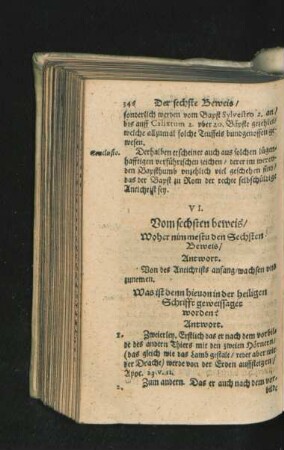 346 Der sechste Beweis/
sonderlich werden vom Bapst Sylvestro 2. an/
biß auff Calixtum 2. vber 20. Bäpste gezehlet/
welche allzumal solche Teuffels bundgenossen ge-
wesen.
Conclusio. Derhalben erscheinet auch aus solchen lügen-
hafftigen verführischen zeichen/ derer im weren-
den Bapsthumb vnzehlich viel geschehen sind/
das der Bapst zu Rom der rechte selbschüldige
Antichrist sey.
VI.
Vom sechsten beweis/
Woher nimmestu den Sechsten
Beweis/
Antwort.
Von des Antichrists anfang/ wachsen vnd
zunemen.
Was ist denn hieuon in der heiligen
Schrifft geweissaget
worden?
Antwort.
1. Zweierley. Erstlich das er nach dem vorbil-
de des andern Thiers mit den zweien Hörnern/
(das gleich wie das Lamb gestalt/ redet aber wie
der Drache) werde von der Erden auffsteigen/
Apoc. 13. v. 11.
2. Zum andern. Das er auch nach dem vor-
bilde